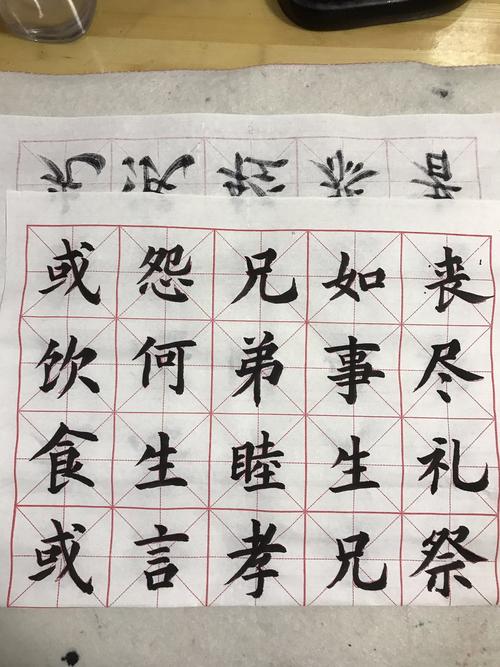 丧尽礼祭
如事生兄
兄弟睦孝
怨何生言
或饮食或